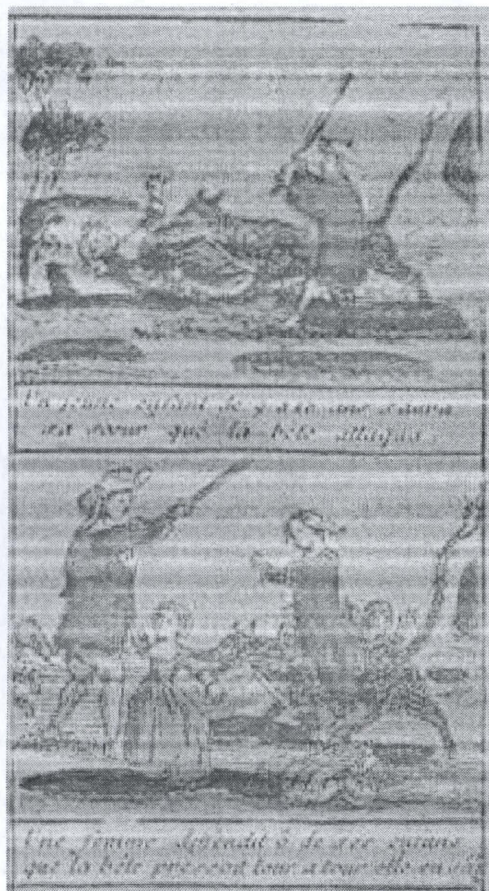 Un jeune enfant de 9 a 10 ans sauva
sa sœur que la bête attaqua.
Une femme defendit 6 de ses enfans
que la bête prenoit tour a tour elle en